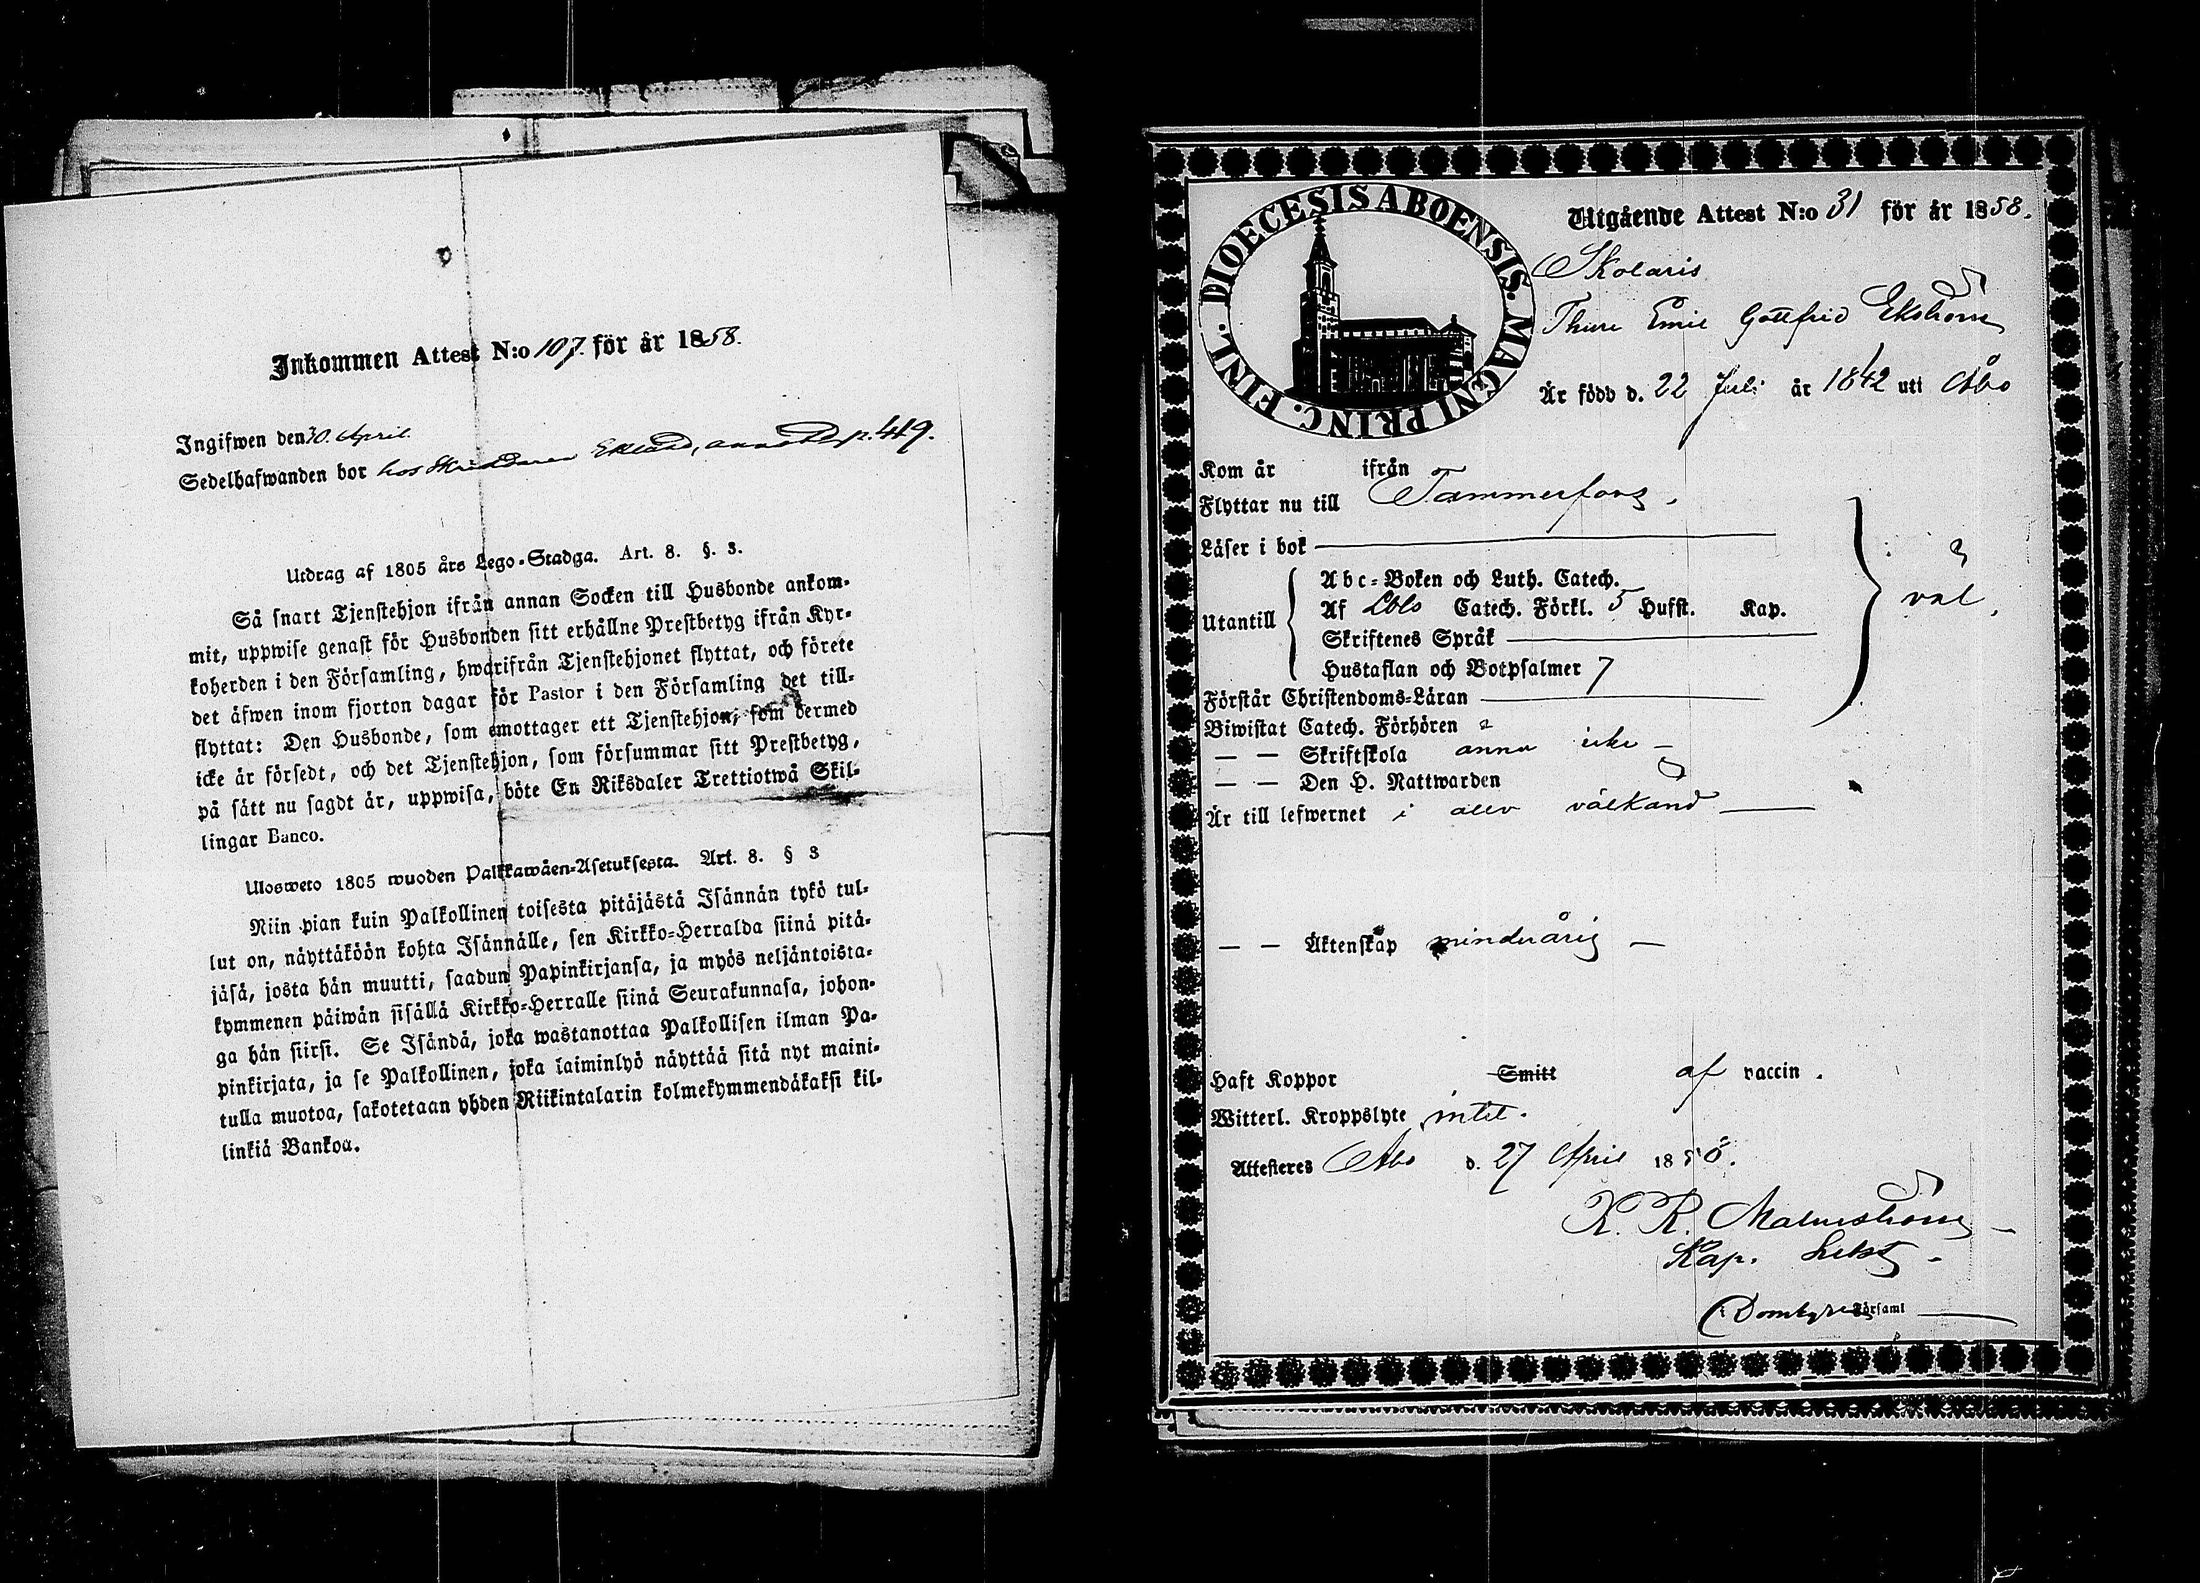 Inkommen Attest N:o 107. för år 1858.
Ingifwen den 30. April.
Sedelhafwanden bor hos Eklund, p. 449.
Utdrag af 1805 års Lego-Stadga. Art. 8. §. 3.
Så snart Tjenstehjon ifrån annan Socken till Husbonde ankom-
mit, uppwise genast för Husbonden sitt erhållne Prestbetyg ifrån Kyr-
koherden i den Församling, hwarifrån Tjenstehjonet flyttat, och förete
det äfwen inom fjorton dagar för Pastor i den Församling det till-
flyttat: Den Husbonde, som emottager ett Tjenstehjon, som dermed
icke är försedt, och det Tjenstehjon, som försummar sitt Prestbetyg,
på sätt nu sagdt är, uppwisa, böte En Riksdaler Trettiotwå Skil-
lingar Banco.
Ulosweto 1805 wuoden Palkkawäen-Asetuksesta. Art. 8. § 3
Niin pian kuin Palkollinen toisesta pitäjästä Isännän tykö tul-
lut on, näyttäköön kohta Isännälle, sen Kirkko-Herralda siinä pitä-
jäsä, josta hän muutti, saadun Papinkirjansa, ja myös neljäntoista-
kymmenen päiwän sisällä Kirkko-Herralle siinä Seurakunnasa, johon-
ga hän siirsi. Se Isändä, joka wastanottaa Palkollisen ilman Pa-
pinkirjata, ja se Palkollinen, joka laiminlyö näyttää sitä nyt maini-
tulla muotoa, sakotetaan yhden Riikintalarin kolmekymmendäkaksi kil-
linkiä Bankoa.
FINL. DIOECESIS ABOENSIS. MAGNI PRINC.
Utgående Attest N:o 31 för år 1858.
Skolaris
Thure Emil Gottfrid Ekström
Är född d. 22 Juli år 1842 uti Åbo
Kom år ifrån
Flyttar nu till Tammerfors.
Läser i bok
Abc-Boken och Luth. Catech.
Utantill Af Lbls Catech. Förkl. 5 Hufst. Kap. väl.
Skriftenes Språk
Hustaflan och Botpsalmer 7
Förstår Christendoms-Läran
Biwistat Catech. Förhören
— — Skriftskola ännu icke —
— — Den H. Nattwarden
Är till lefwernet i allo välkänd
— — Äktenskap minderårig —
Haft Koppor Smitt af vaccin.
Witterl. Kroppslyte intet.
Attesteres Åbo d. 27 April 1858.
K. R. Malmström
Kap.
i Domkyrko Församl